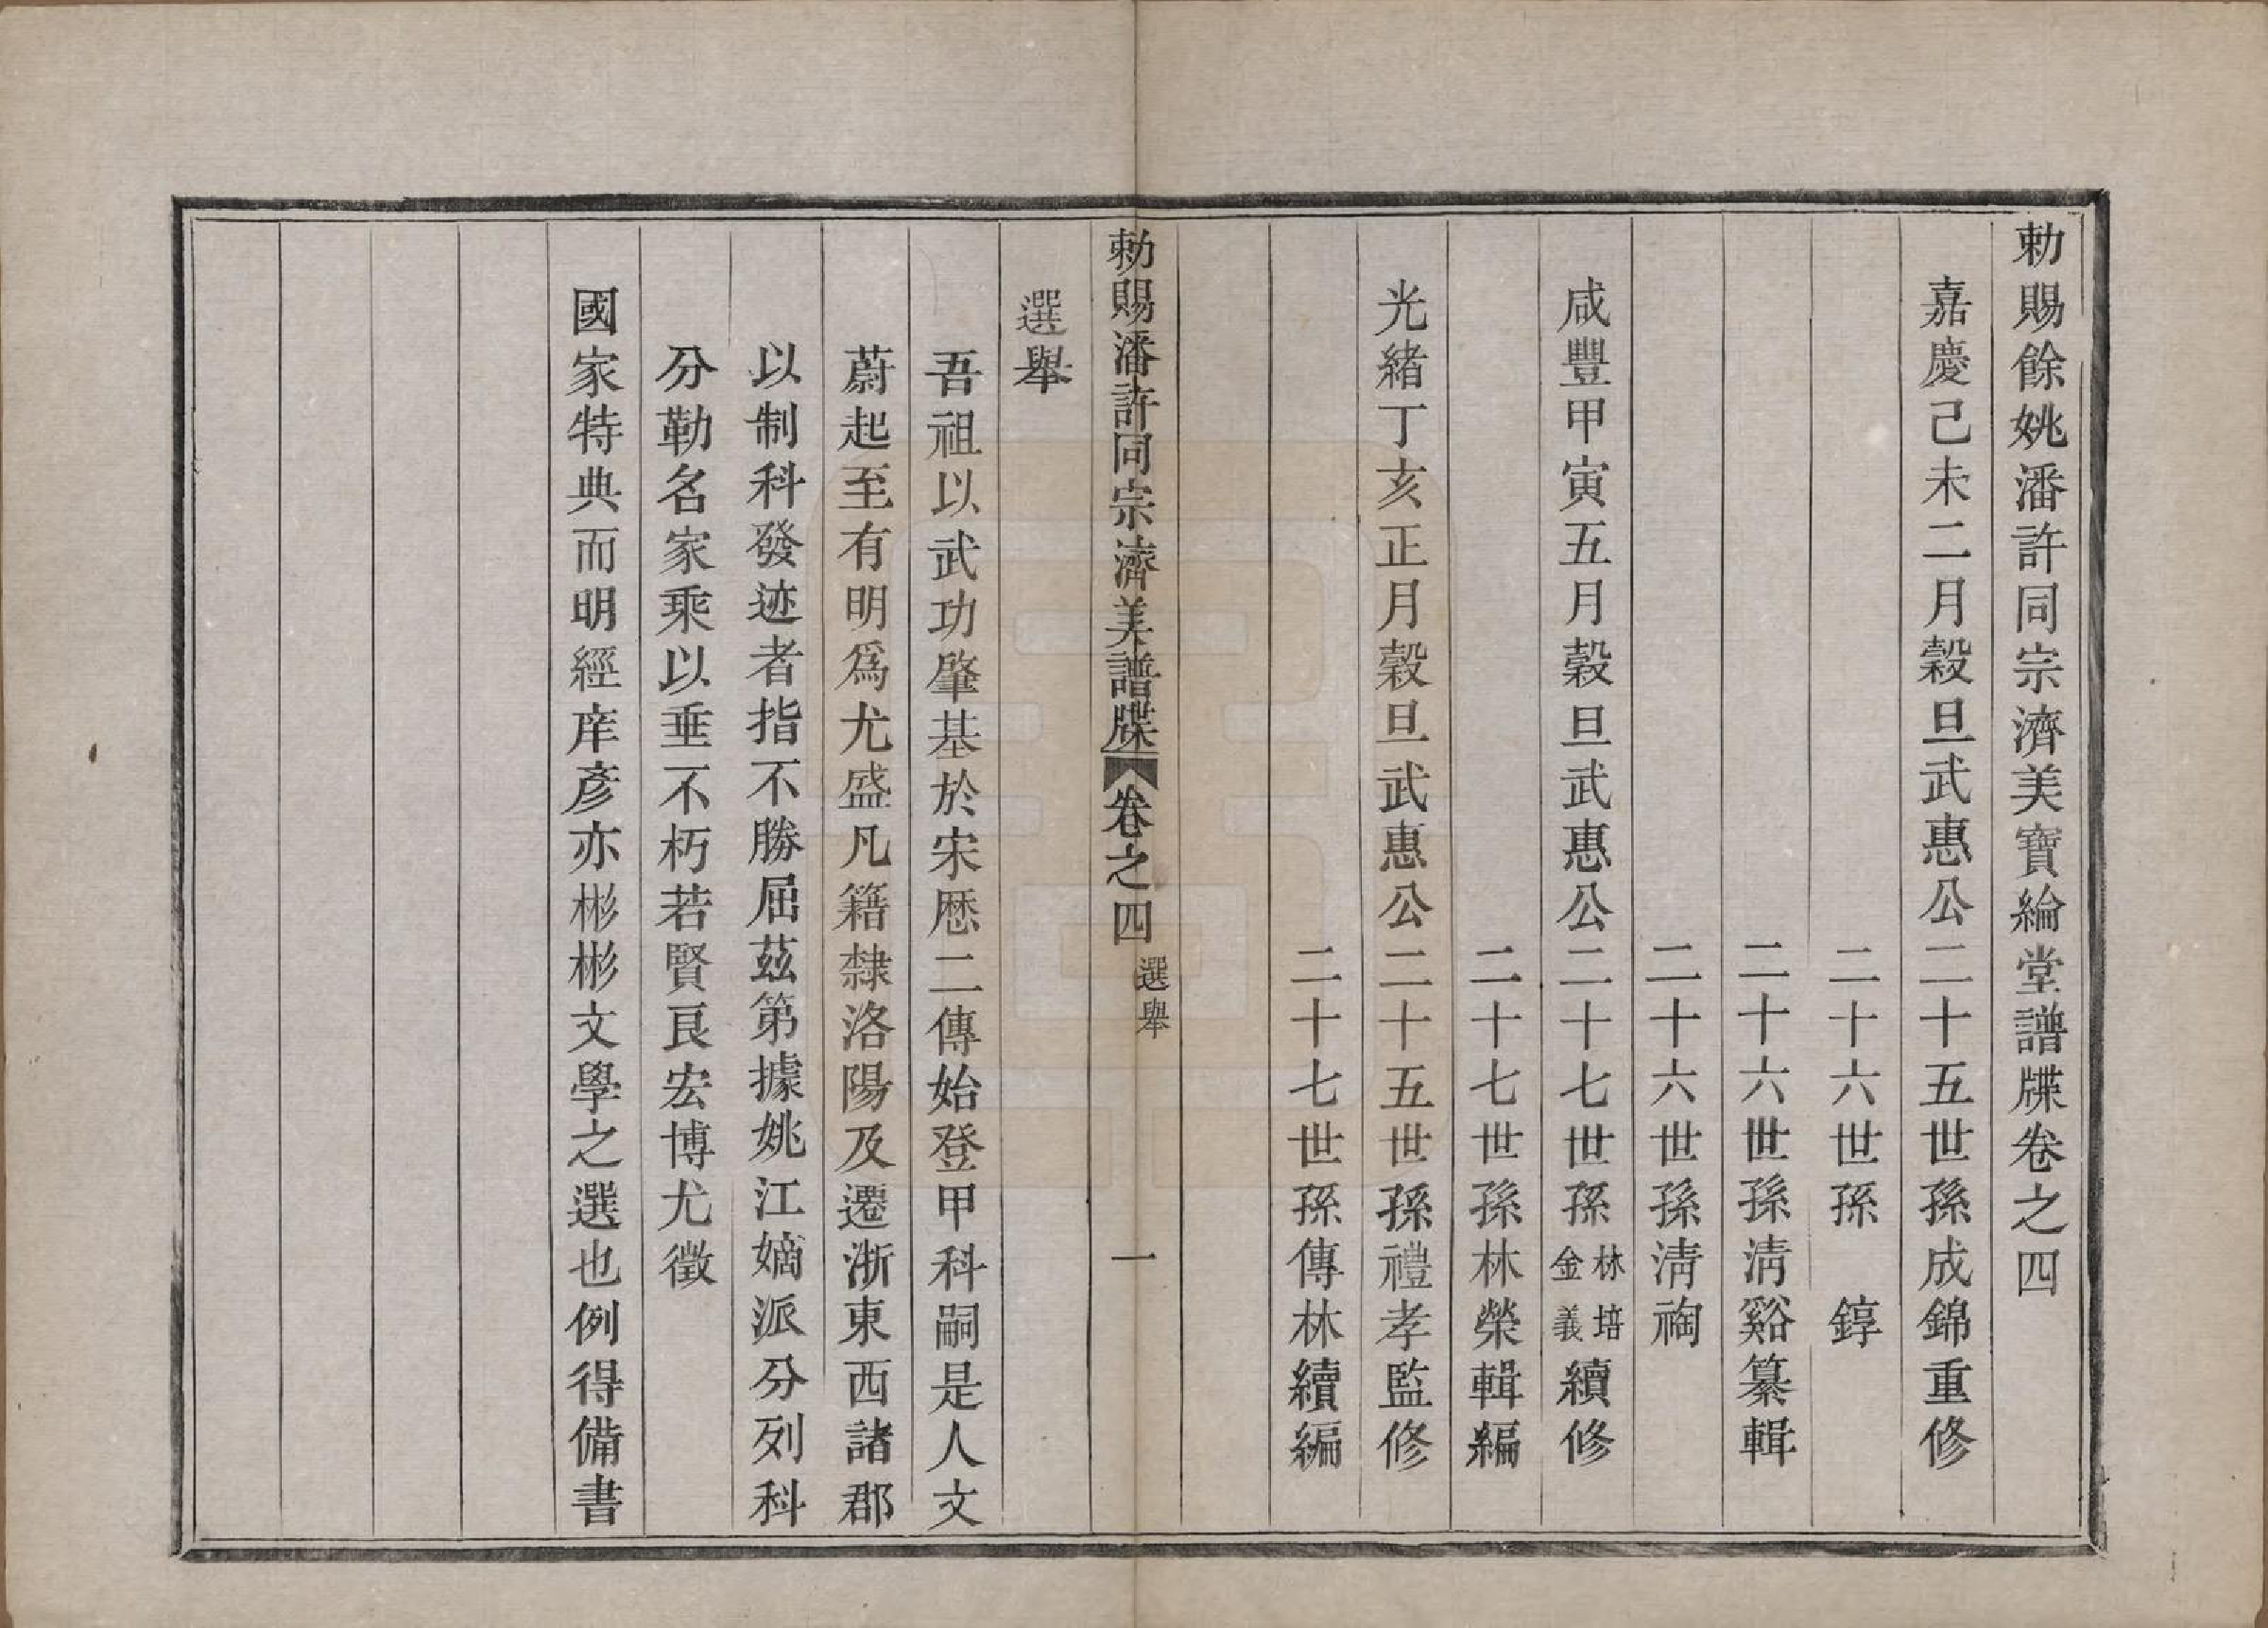 勅賜餘姚潘許同宗濟美寶綸堂譜牒卷之四
嘉慶己未二月榖旦武惠公二十五世孫成錦重修
二十六世孫　錞
二十六世孫淸谿纂輯
二十六世孫淸祹
咸豐甲寅五月榖旦武惠公二十七世孫林培金義續修
二十七世孫林榮輯編
光緒丁亥正月榖旦武惠公二十五世孫禮孝監修
二十七世孫傳林續編
勅賜潘許同宗濟美譜牒　卷之四　選舉　一
選舉
吾祖以武功肇基於宋歷二傳始登甲科嗣是人文
蔚起至有明爲尤盛凡籍隸洛陽及遷浙東西諸郡
以制科發迹者指不勝屈茲第據姚江嫡派分列科
分勒名家乘以垂不朽若賢良宏博尤徵
國家特典而明經庠彥亦彬彬文學之選也例得備書